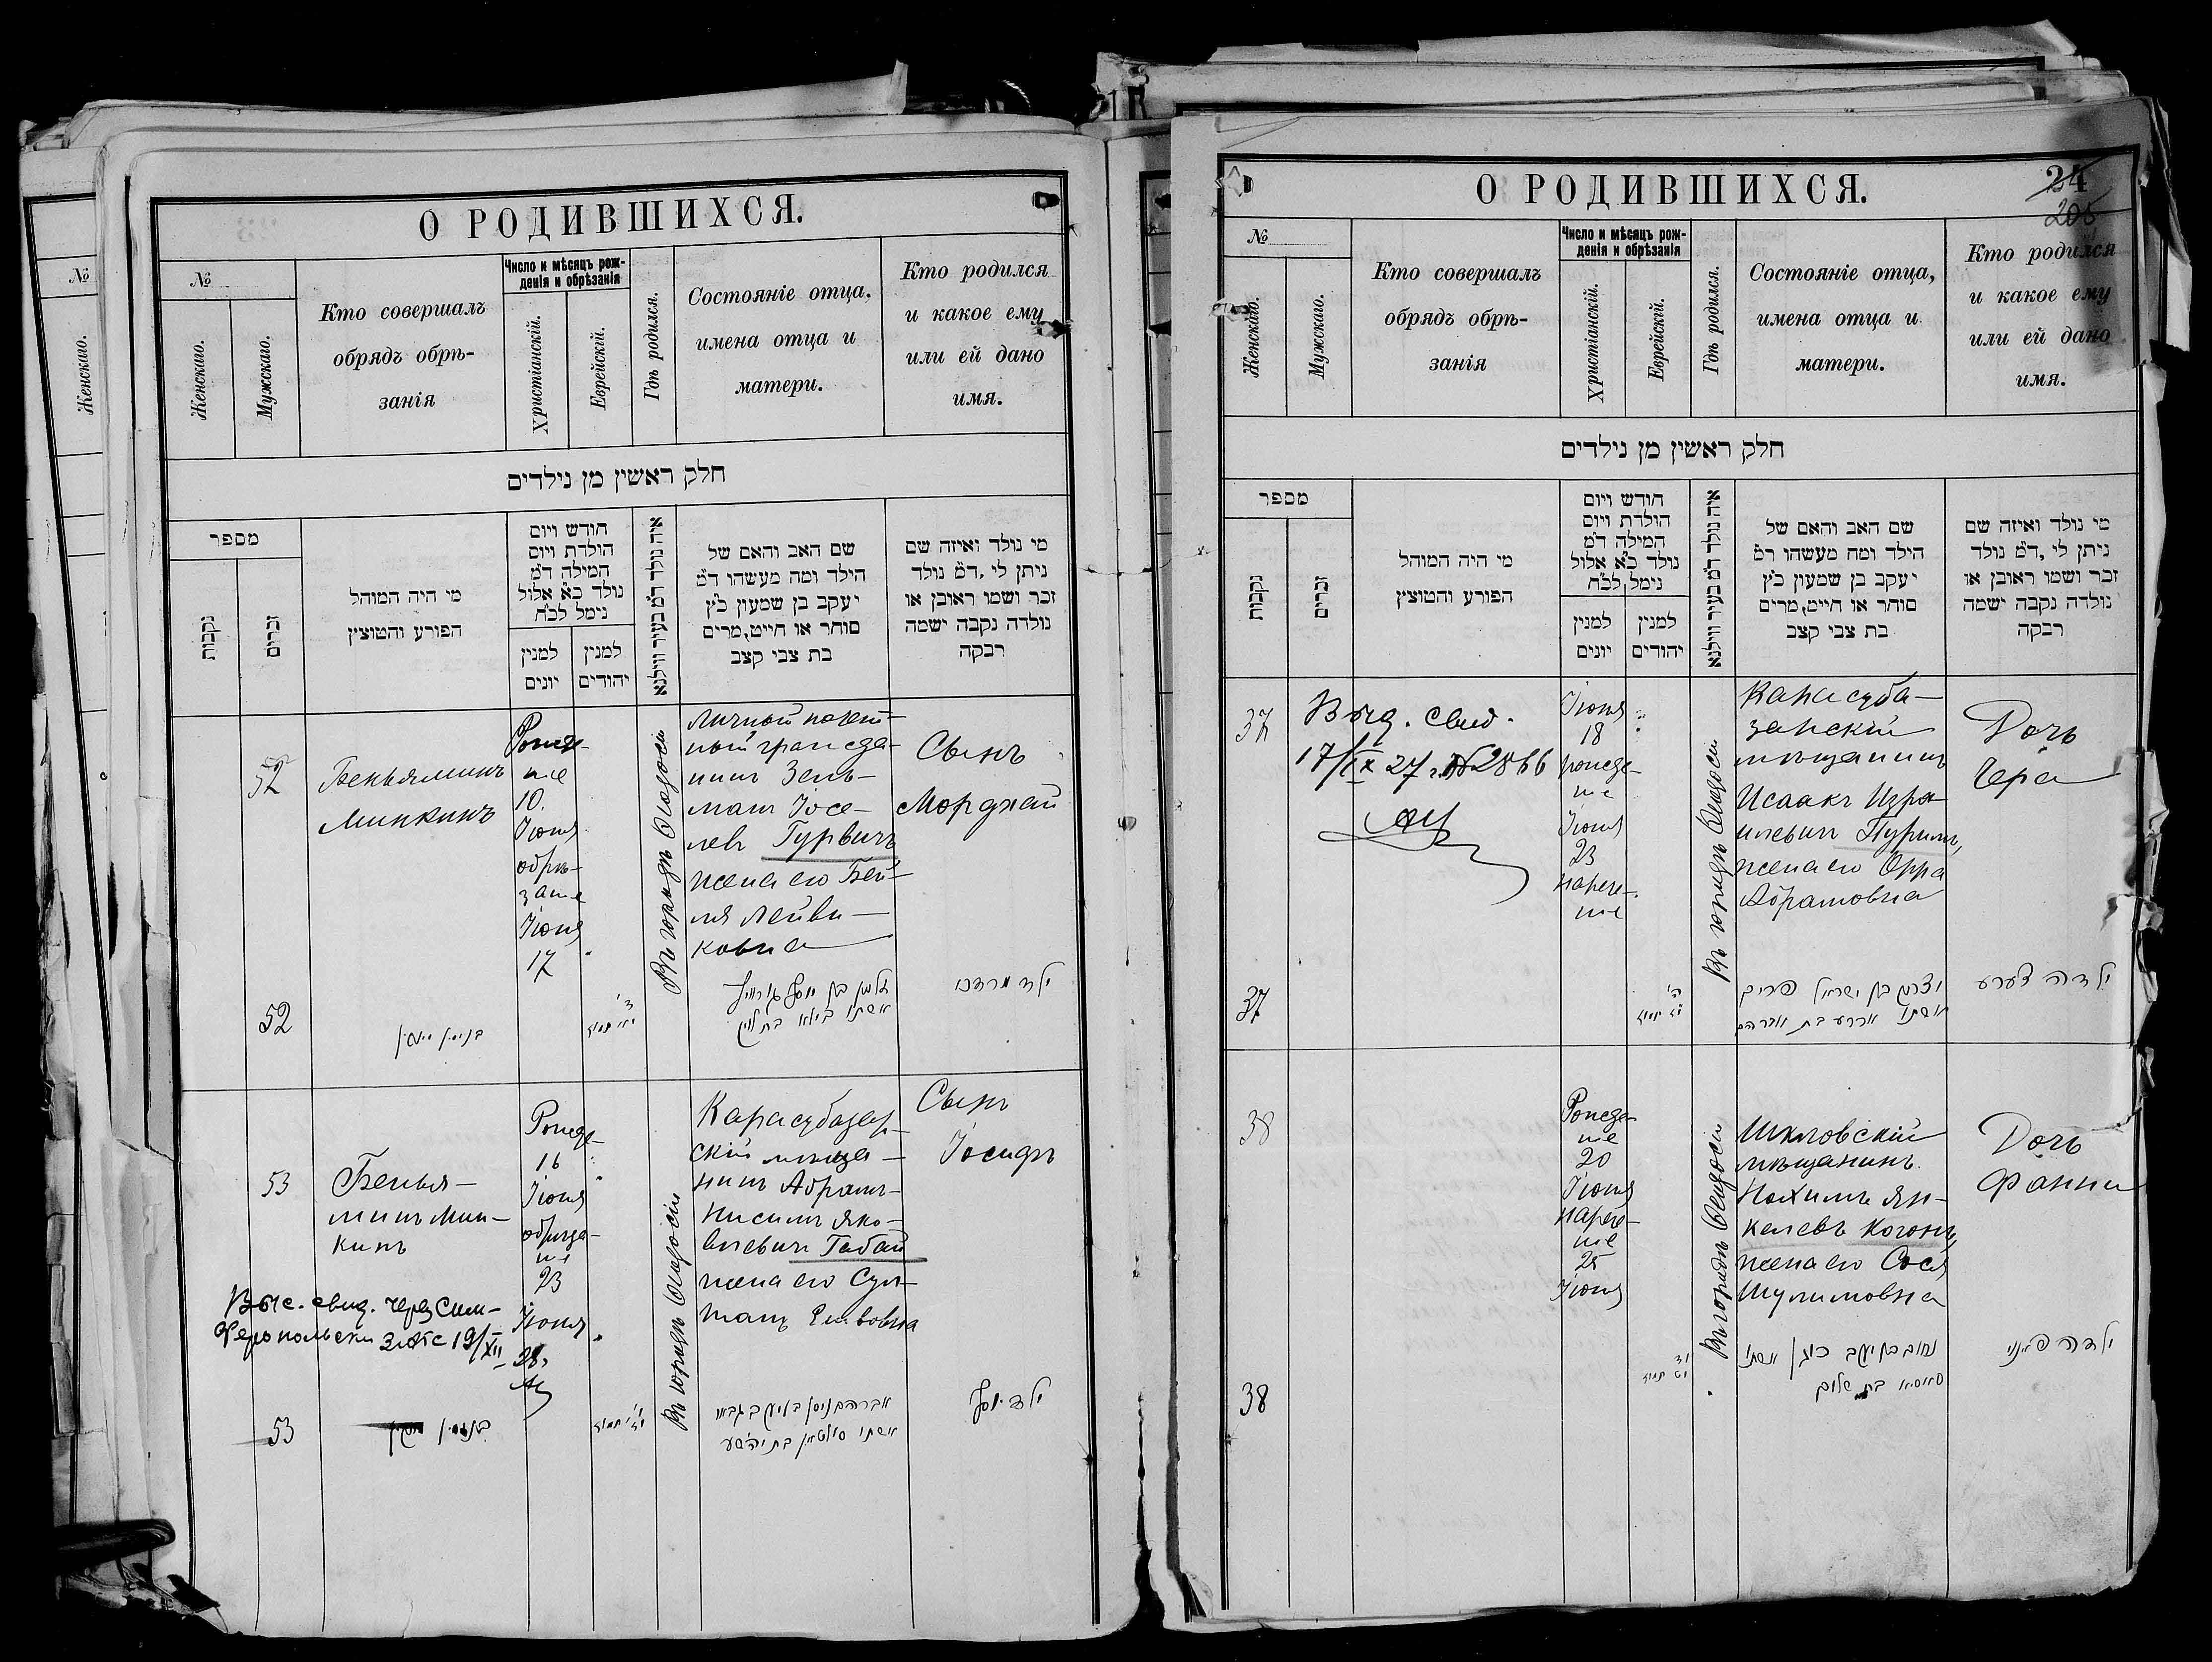 О РОДИВШИХСЯ.
№
Женскаго.
Мужскаго.
Кто совершалъ
обрядъ обрѣ-
занія
Число и мѣсяцъ рож-
денія и обрѣзанія
Христіанскій.
Еврейскій.
Гдѣ родился.
Состояніе отца,
имена отца и
матери.
Кто родился
и какое ему
или ей дано
имя.
חלק ראשין מן נילדים
מספר
נקבות
זכרים
מי היה המוהל
הפורע והמוצץ
חודש ויום
הולדת ויום
המילה ד״מ
נולד כ״א אלול
נימל לכ״ח
למנין
יונים
למנין
יהודים
איה נולד ד״מ בעיר ווילנא
שם האב והאם של
הילד ומה מעשהו ד״מ
יעקב בן שמעון כ״ץ
סוחר או חייט, מרים
בת צבי קצב
מי נולד ואיזה שם
ניתן לי, ד״מ נולד
זכר ושמו ראובן או
נולדה נקבה ישמה
רבקה
52
Беньяминъ
Минкинъ
Рожде-
ніе
10.
Іюня
обрѣ-
заніе
Іюня
17
Въ городѣ Ѳеодосіи
Личный почет-
ный гражда-
нинъ Зель-
манъ Іосе-
левъ Гурвичъ
жена его Бей-
ля Лейви-
ковна
Сынъ
Мордхай
52
ילד מרדכי
53
Бенья-
минъ Мин-
кинъ
Рожде-
16
Іюня
обрѣза-
ніе
23
Іюня
Въ городѣ Ѳеодосіи
Карасубазар-
скій мѣща-
нинъ Абрамъ-
Нисимъ Яко-
влевичъ Габай
жена его Сул-
танъ
Сынъ
Іосифъ
Выс. свид. через Сим-
феропольский Загс 19/XII
28г
53
אברהם ניסן בן יעקב גבאי
אשתו סולטאן בת יהושע
ילד יוסף
О РОДИВШИХСЯ.
24
205
№
Женскаго.
Мужскаго.
Кто совершалъ
обрядъ обрѣ-
занія
Число и мѣсяцъ рож-
денія и обрѣзанія
Христіанскій.
Еврейскій.
Гдѣ родился.
Состояніе отца,
имена отца и
матери.
Кто родился
и какое ему
или ей дано
имя.
חלק ראשין מן נילדים
מספר
נקבות
זכרים
מי היה המוהל
הפורע והמוצץ
חודש ויום
הולדת ויום
המילה ד״מ
נולד כ״א אלול
נימל לכ״ח
למנין
יונים
למנין
יהודים
איה נולד ד״מ בעיר ווילנא
שם האב והאם של
הילד ומה מעשהו ד״מ
יעקב בן שמעון כ״ץ
סוחר או חייט, מרים
בת צבי קצב
מי נולד ואיזה שם
ניתן לי, ד״מ נולד
זכר ושמו ראובן או
נולדה נקבה ישמה
רבקה
37
Выд. свид.
17/IX 27 г. № 2866
Іюня
18
рожде-
ніе
Іюня
23
нарече-
ніе
Въ городѣ Ѳеодосіи
Карасуба-
зарскій
мѣщанинъ
Исаакъ Изра-
илевичъ Пуримъ,
жена его Орра
Абрамовна
Дочь
Чера
37
יצחק בן ישראל פורים
אשתו אררע בת אברהם
38
Рожде-
ніе
20
Іюня
нарече-
ніе
25
Іюня
Въ городѣ Ѳеодосіи
Шкловскій
мѣщанинъ
Нохимъ Ян-
келевъ Когонъ,
жена его Сося
Шулимовна
Дочь
Фанни
38
נחום בן יעקב כוגן אשתו
סאסיא בת שלום
ילדה פייני